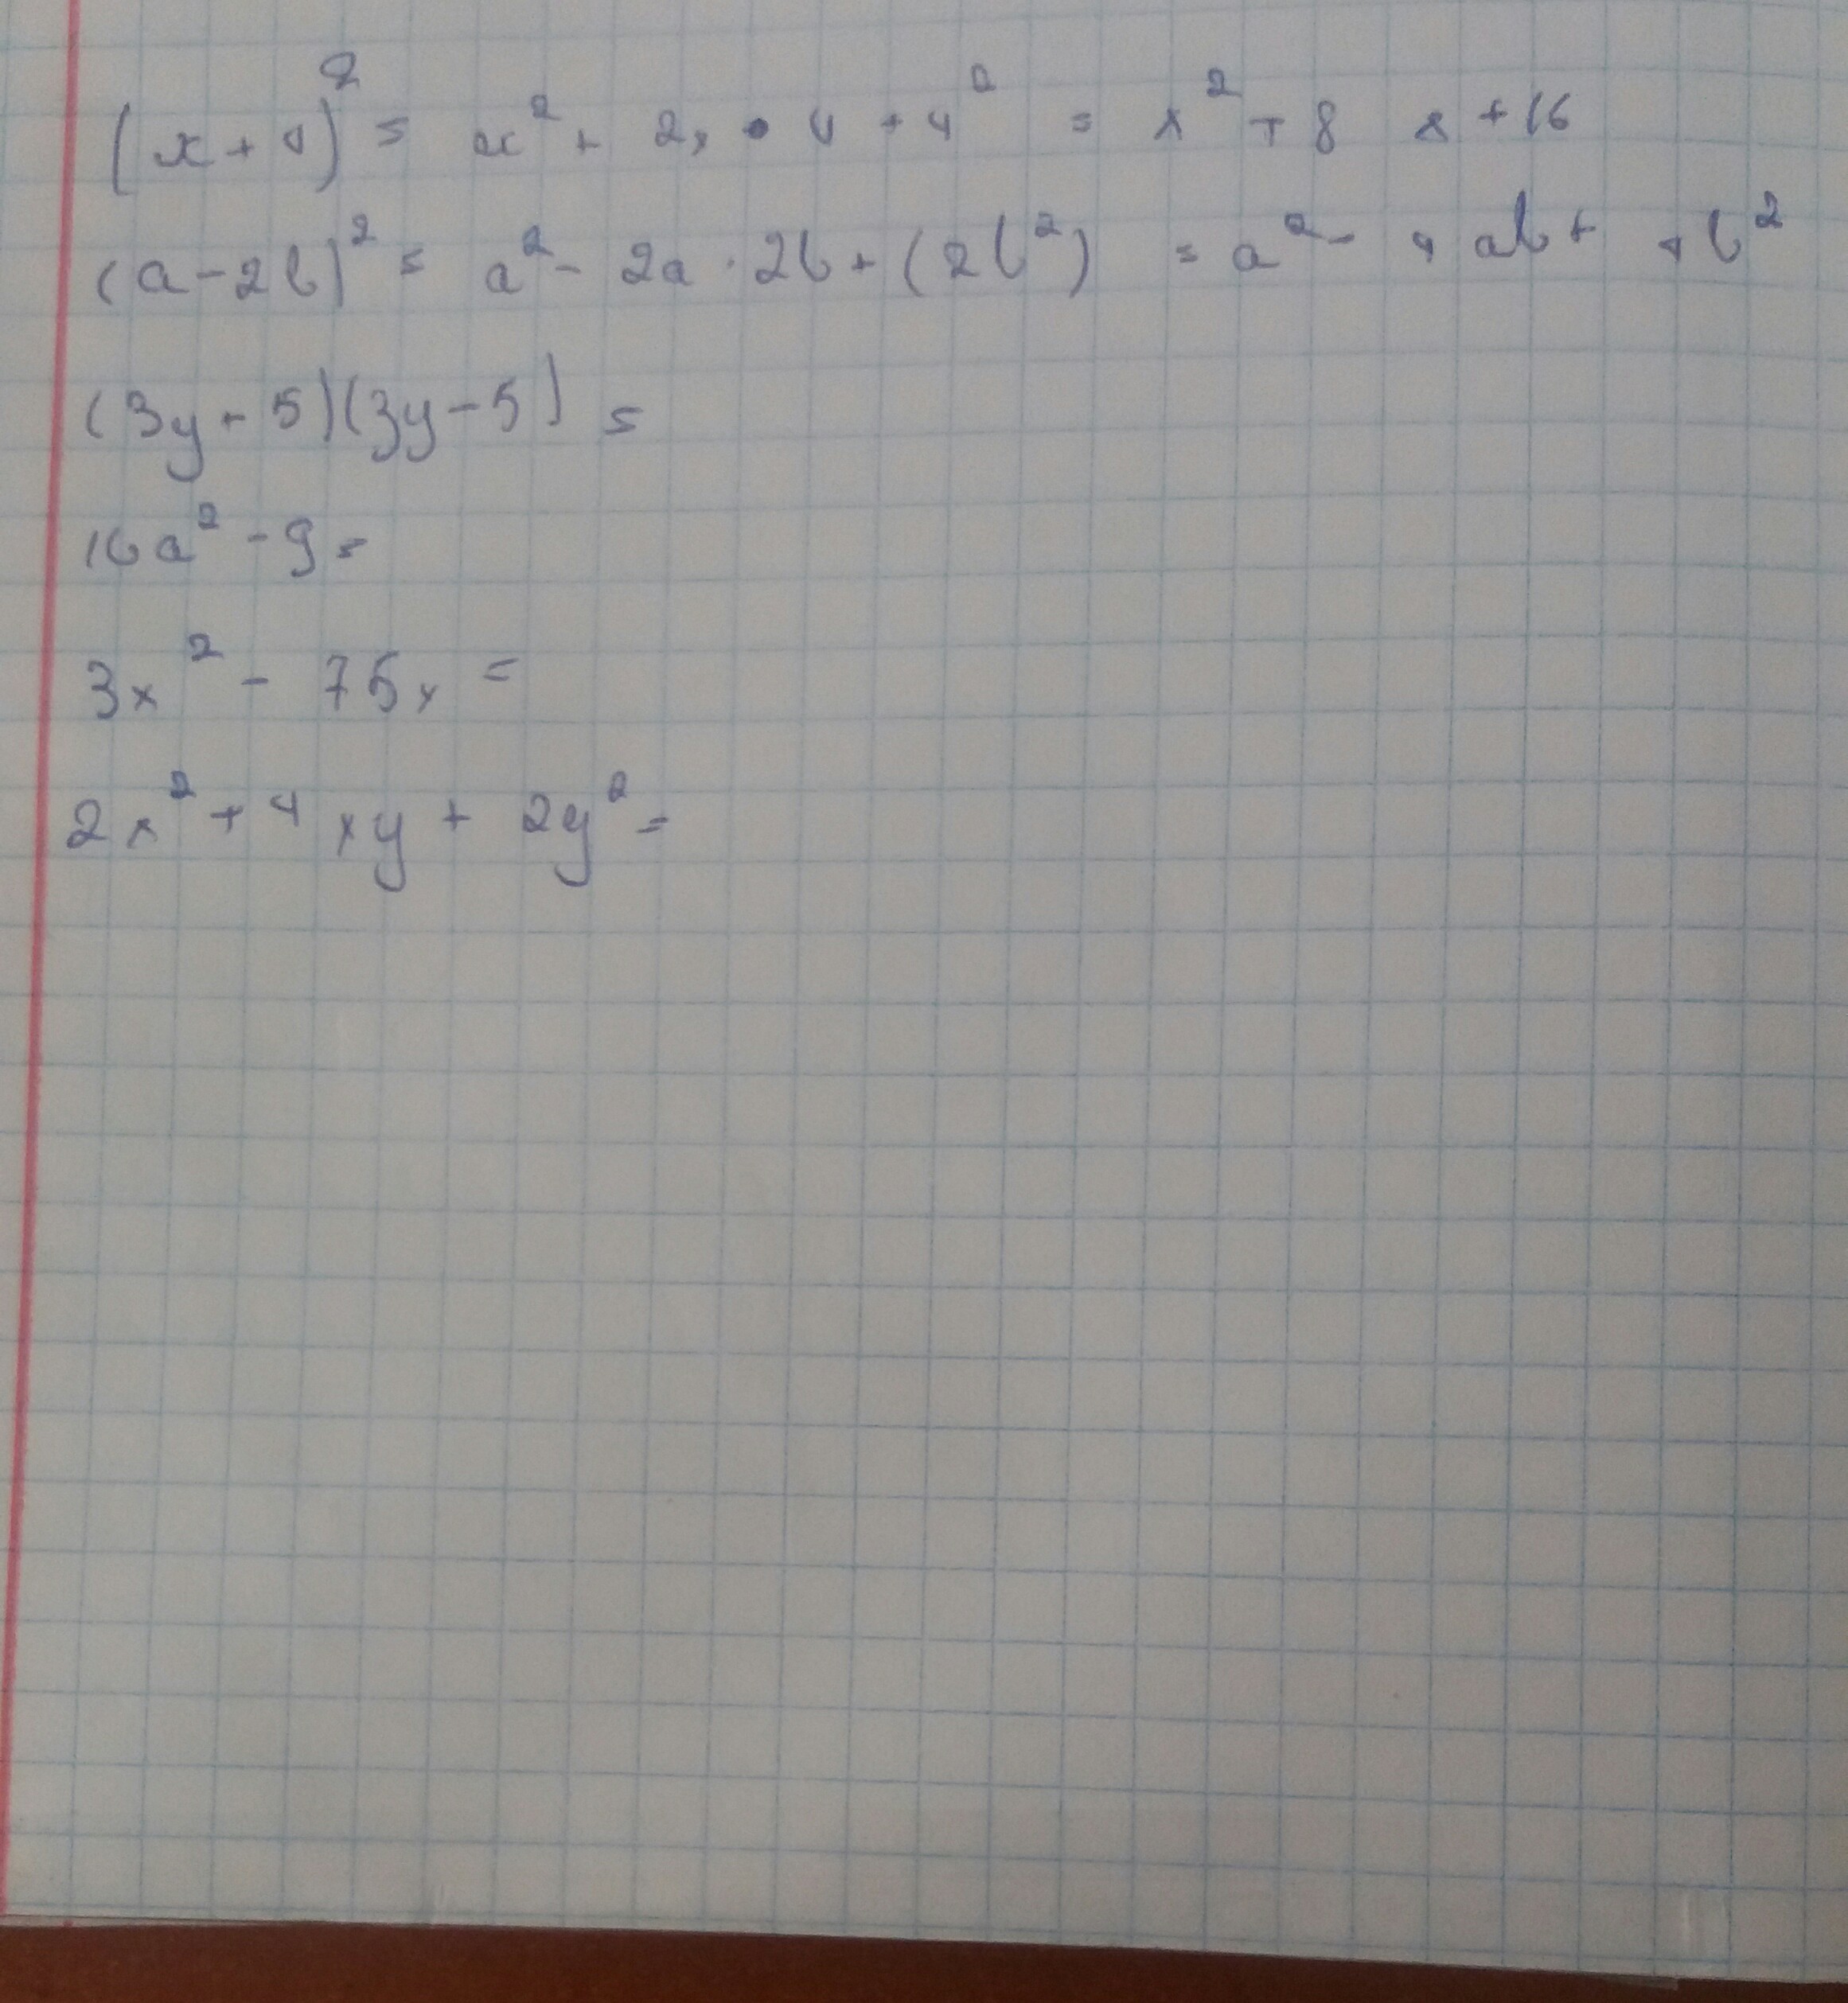 (x + 4)² = x² + 2x · 4 + 4² = x² + 8 x + 16
(a - 2b)² = a² - 2a · 2b + (2b²) = a² - 4 ab + 4b²
(3y + 5)(3y - 5) =
16a² - 9 =
3x² - 75x =
2x² + 4xy + 2y² =